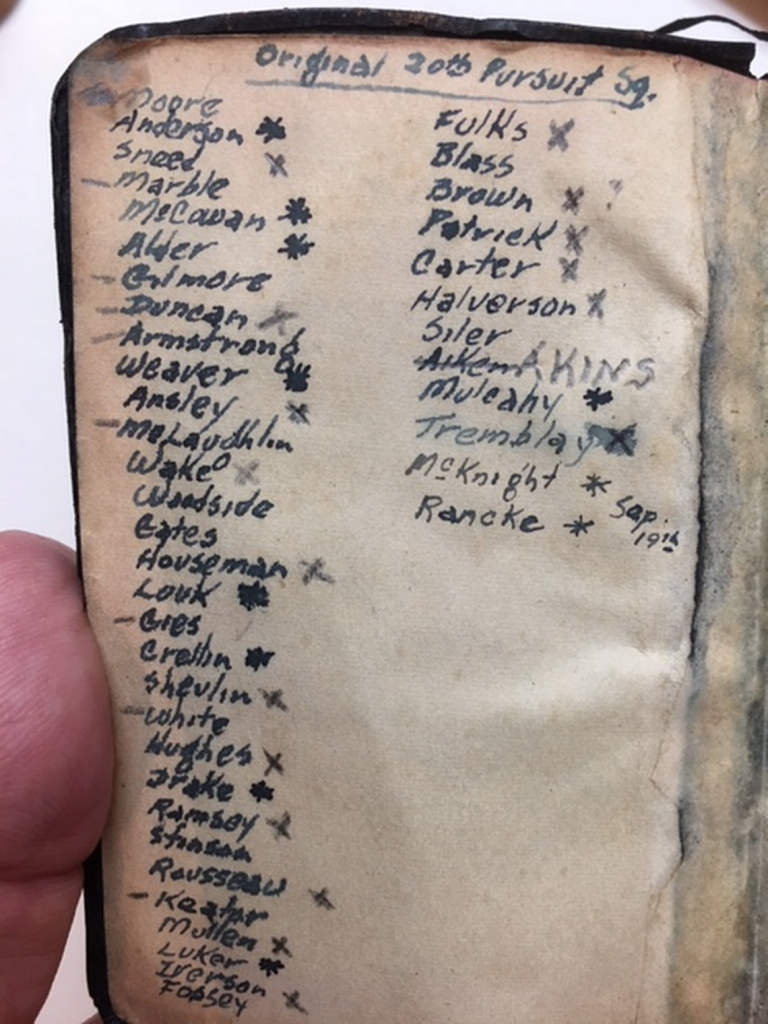 Original 20th Pursuit Sq.
Moore
Anderson *
Sneed x
- Marble
McCowan *
Alder *
- Gilmore
- Duncan x
- Armstrong
Weaver *
Ansley x
- McLaughlin
Wake x
Woodside
Gates
Houseman x
Louk *
- Gies
Crellin *
Shevlin x
- White
Hughes x
Drake *
Ramsey x
Stinson
Rousseau x
- Keator
Mullen x
Luker *
Iverson x
Fossey
Fulks x
Blass
Brown x ?
Patrick x
Carter x
Halverson x
Siler
AKINS
Mulcahy *
Tremblay x
McKnight *
Rancke * Sep. 19th